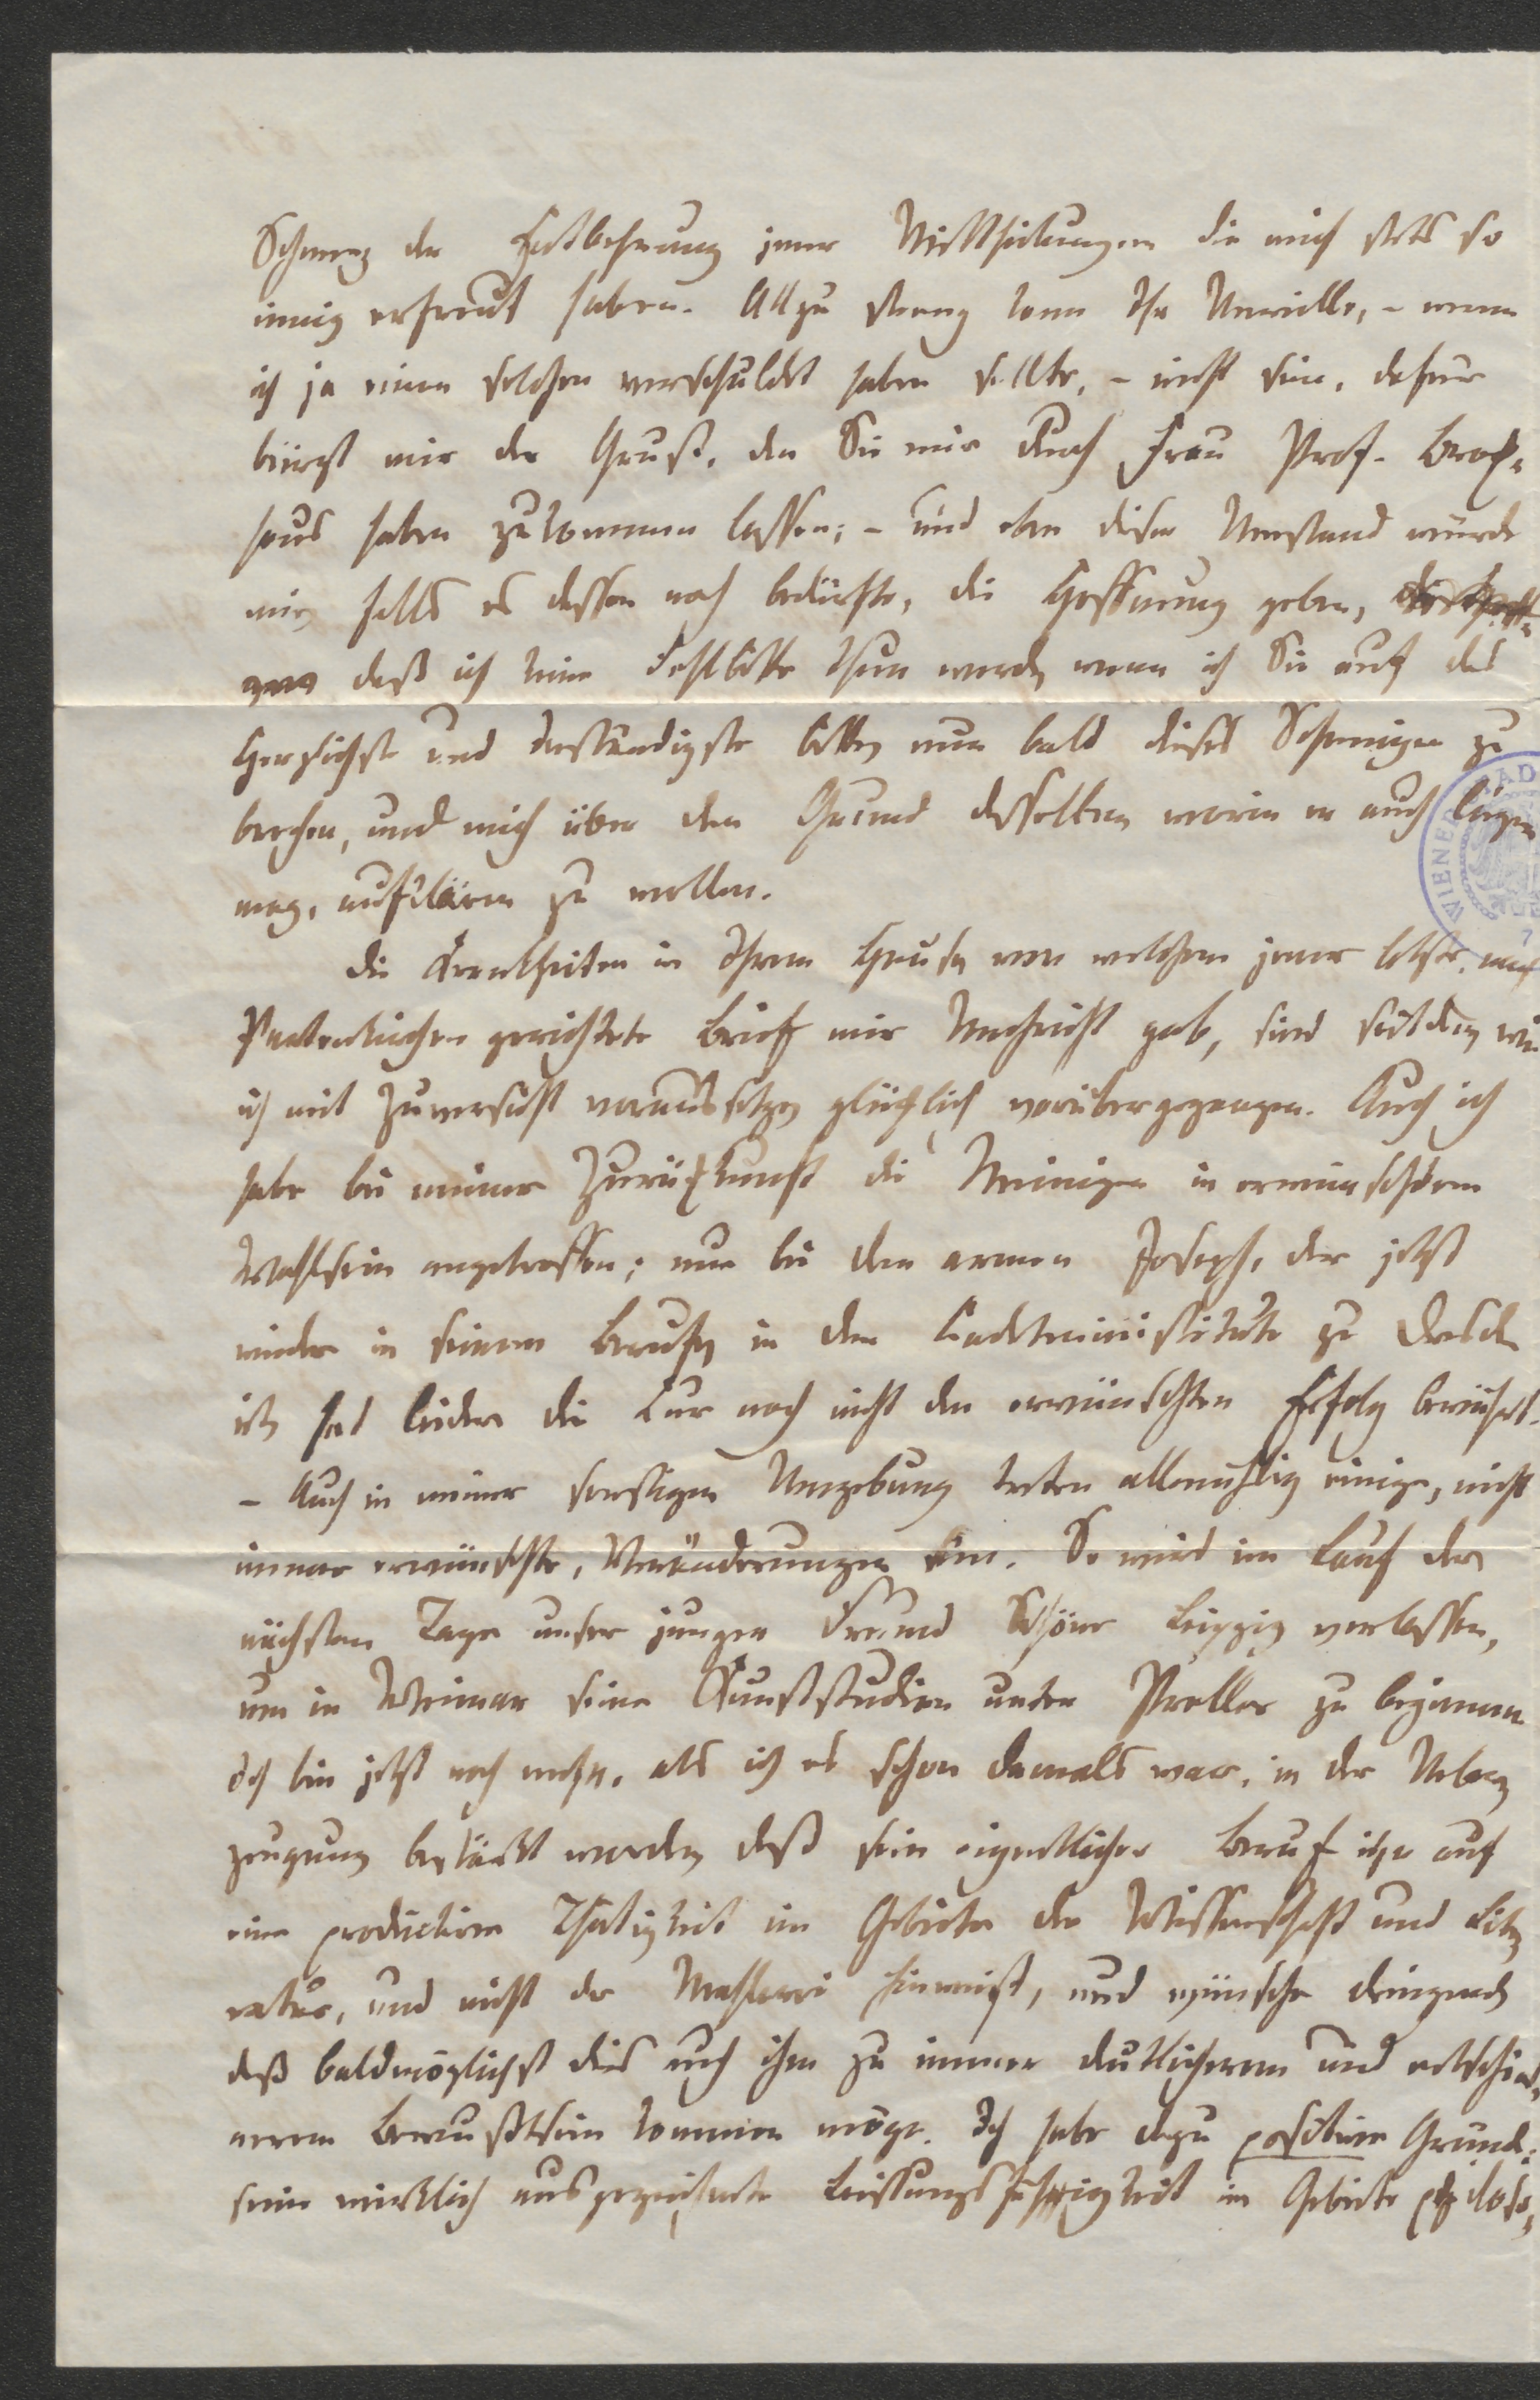 Schmerz der Entbehrung jener Mittheilungen die mich stets so
innig erfreut haben. Allzu streng kann Ihr Unwille, – wenn
ich ja einen solchen verschuldet haben sollte, – nicht sein, dafür
bürgt mir der Gruß, den Sie mir durch Frau Prof. Brock-
haus haben zukommen lassen; – und eben dieser Umstand würde
mir, falls es dessen noch bedürfte, die Hoffnung geben,
daß ich keine Fehlbitte thun werde, wenn ich Sie auf das
Herzlichste und Inständigste bitte, nun bald dieses Schweigen zu
brechen, und mich über den Grund desselben, worin er auch liegen
mag, aufklären zu wollen.
Die Krankheiten in Ihrem Hause, von welchen jener letzte, nach
Partenkirchen gerichtete Brief mir Nachricht gab, sind seitdem, wie
ich mit Zuversicht voraussetze, glücklich vorübergegangen. Auch ich
habe bei meiner Zurückkunft die Meinigen in erwünschtem
Wohlsein angetroffen; nur bei dem armen Joseph, der jetzt
wieder in seinem Berufe, in dem Cadetteninstitute zu Dresden
ist, hat leider die Cur noch nicht den erwünschten Erfolg bewährt.
– Auch in meiner sonstigen Umgebung treten allmählig einige, nicht
immer erwünschte, Veränderungen ein. So wird im Lauf der
nächsten Tage unser junger Freund Schöne Leipzig verlassen,
um in Weimar seine Kunststudien unter Preller zu beginnen.
Ich bin jetzt noch mehr, als ich es schon damals war, in der Ueber-
zeugung bestärkt worden, daß sein eigentlicher Beruf ihn auf
eine productive Thätigkeit im Gebiete der Wissenschaft und Lite-
ratur, und nicht der Mahlerei hinweist, und wünsche dringend,
daß baldmöglichst dies auch ihm zu immer deutlicherem und entschied-
nerem Bewußtsein kommen möge. Ich habe dazu positive Gründe:
seine wirklich ausgezeichnete Leistungsfähigkeit im Gebiete philoso-
WIENER STAD
7